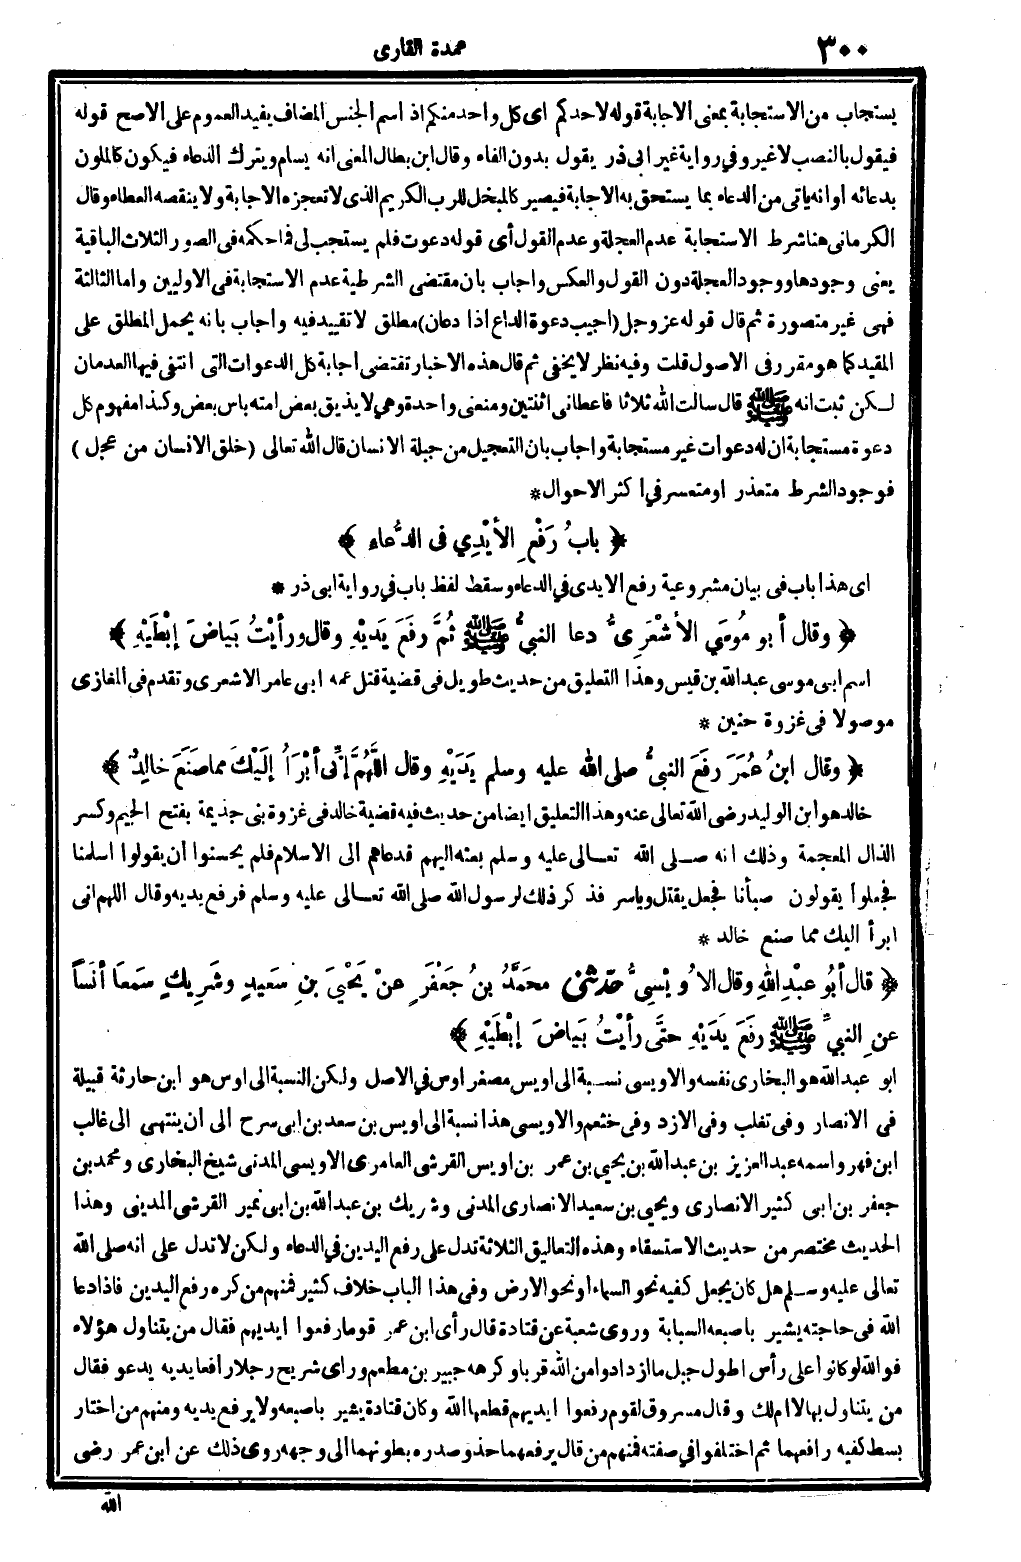 ٣٠٠
عمدة القارى
يستجاب من الاستجابة بمعنى الاجابة قوله لاحدكم اى كل واحد منكم اذ اسم الجنس المضاف يفيد العموم على الاصح قوله
فيقول بالنصب لا غير وفي رواية غير ابى ذر يقول بدون الفاء وقال ابن بطال المعنى انه يسام ويترك الدعاء فيكون كالمان
بدعائه او انه ياتى من الدعاء بما يستحق به الاجابة فيصير كالمبخل للرب الكريم الذى لا تعجزه الاجابة ولا ينقصه العطاء وقال
الكرمانى هنا شرط الاستجابة عدم العجلة وعدم القول أى قوله دعوت فلم يستجب لى فما حكمه فى الصور الثلاث الباقية
يعنى وجودها ووجود العجلة دون القول والعكس واجاب بان مقتضى الشرطية عدم الاستجابة فى الاوليين واما الثالثة
فهى غير متصورة ثم قال قوله عز وجل (اجيب دعوة الداع اذا دعان) مطلق لا تقييد فيه واجاب بانه يحمل المطلق على
المقيد كما هو مقرر فى الاصول قلت وفيه نظر لا يخفى ثم قال هذه الاخبار تقتضى اجابة كل الدعوات التى انتفى فيها العدمان
لكن ثبت انه ﷺ قال سالت الله ثلاثا فاعطانى اثنتين ومنعنى واحدة وهى لا يذيق بعض امته باس بعض وكذا مفهوم كل
دعوة مستجابة ان له دعوات غير مستجابة واجاب بان التعجيل من جبلة الانسان قال الله تعالى (خلق الانسان من عجل)
فوجود الشرط متعذر او متعسر في اكثر الاحوال *
﴿ بابُ رَفْعِ الأيْدِي فى الدُّعاءِ ﴾
اى هذا باب فى بيان مشروعية رفع الايدى في الدعاء وسقط لفظ باب في رواية ابى ذر *
﴿ وقال أبو مُوسَي الأشْعَرِىُّ دعا النبيُّ ﷺ ثُمَّ رفَعَ يَديْهِ وقال ورأيْتُ بَياضَ إبْطَيْهِ ﴾
اسم ابى موسى عبد الله بن قيس وهذا التعليق من حديث طويل فى قضية قتل عمه ابى عامر الاشعرى وتقدم فى المغازى
موصولا فى غزوة حنين *
﴿ وقال ابنُ عُمَرَ رفَعَ النبيُّ صلى الله عليه وسلم يَدَيْهِ وقال اللَّهُمَّ إنِّى أبْرَأُ إلَيْكَ مما صَنَعَ خالِدٌ ﴾
خالد هو ابن الوليد رضى الله تعالى عنه وهذا التعليق ايضا من حديث فيه قضية خالد فى غزوة بنى جذيمة بفتح الجيم وكسر
الذال المعجمة وذلك انه صلى الله تعالى عليه وسلم بعثه اليهم فدعاهم الى الاسلام فلم يحسنوا أن يقولوا اسلمنا
فجعلوا يقولون صبأنا فجعل يقتل وياسر فذكر ذلك لرسول الله صلى الله تعالى عليه وسلم فرفع يديه وقال اللهم انى
ابرأ اليك مما صنع خالد *
﴿ قال أبُو عبْدِ اللهِ وقال الأُوَيْسِىُّ حَدّثنى محَمَّدُ بنُ جَعْفَرٍ عنْ يَحْيَي بنِ سَعِيدٍ وشَرِيكٍ سَمِعَا أنَسَاً
عنِ النبيِّ ﷺ رفَعَ يَدَيْهِ حتَّى رأيْتُ بَياضَ إبْطَيْهِ ﴾
ابو عبد الله هو البخارى نفسه والاويسى نسبة الى اويس مصغر اوس في الاصل ولكن النسبة الى اوس هو ابن حارثة قبيلة
فى الانصار وفى تغلب وفى الازد وفى خثعم والاويسى هذا نسبة الى اويس بن سعد بن ابى سرح الى ان ينتهى الى غالب
ابن فهر واسمه عبد العزيز بن عبد الله بن يحيى بن عمر بن اويس القرشى العامرى الاويسى المدنى شيخ البخارى ومحمد بن
جعفر بن ابى كثير الانصارى ويحيى بن سعيد الانصارى المدنى وشريك بن عبد الله بن ابى نمير القرشى المدينى وهذا
الحديث مختصر من حديث الاستسقاء وهذه التعاليق الثلاثة تدل على رفع اليدين في الدعاء ولكن لا تدل على انه صلى الله
تعالى عليه وسلم هل كان يجعل كفيه نحو السماء أو نحو الارض وفى هذا الباب خلاف كثير فمنهم من كره رفع اليدين فاذا دعا
الله فى حاجته يشير باصبعه السبابة وروى شعبة عن قتادة قال رأى ابن عمر قوما رفعوا ايديهم فقال من يتناول هؤلاء
فوالله لو كانوا على رأس اطول جبل ما ازدادوا من الله قربا وكرهه جبير بن مطعم وراى شريح رجلا رافعا يديه يدعو فقال
من يتناول بها لا ام لك وقال مسروق لقوم رفعوا ايديهم قطعها الله وكان قتادة يشير باصبعه ولا يرفع يديه ومنهم من اختار
بسط كفيه رافعهما ثم اختلفوا في صفته فمنهم من قال يرفعهما حذو صدره بطونهما الى وجهه روى ذلك عن ابن عمر رضى
الله